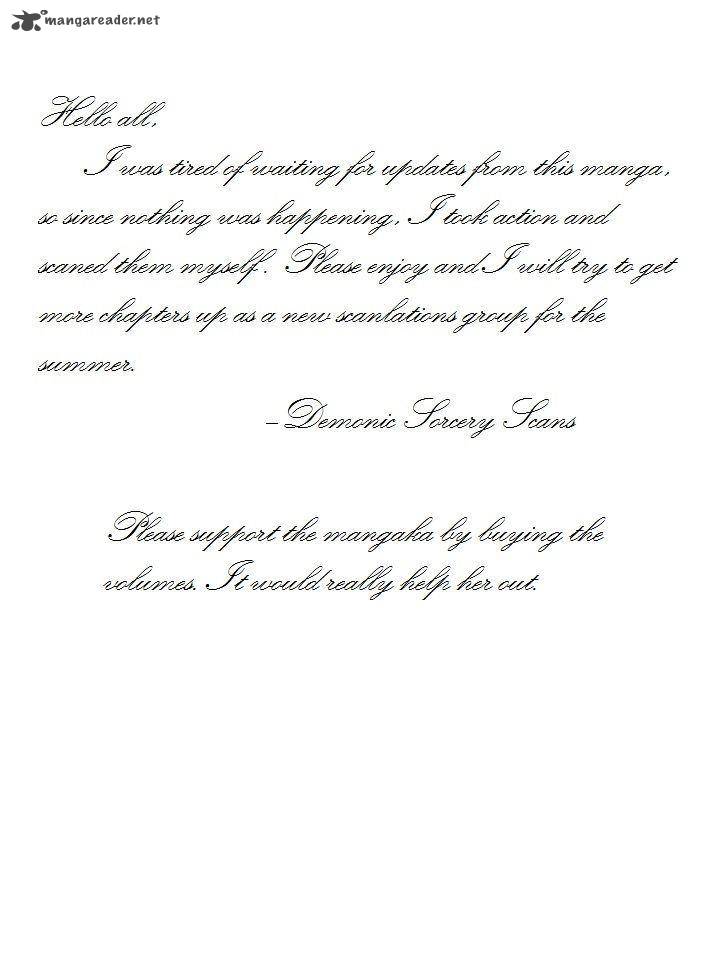 mangareader.net
Hello all,
I was tired of waiting for updates from this manga,
so since nothing was happening, I took action and
scaned them myself. Please enjoy and I will try to get
more chapters up as a new scanlations group for the
summer.
-Demonic Sorcery Scans
Please support the mangaka by buying the
volumes. It would really help her out.